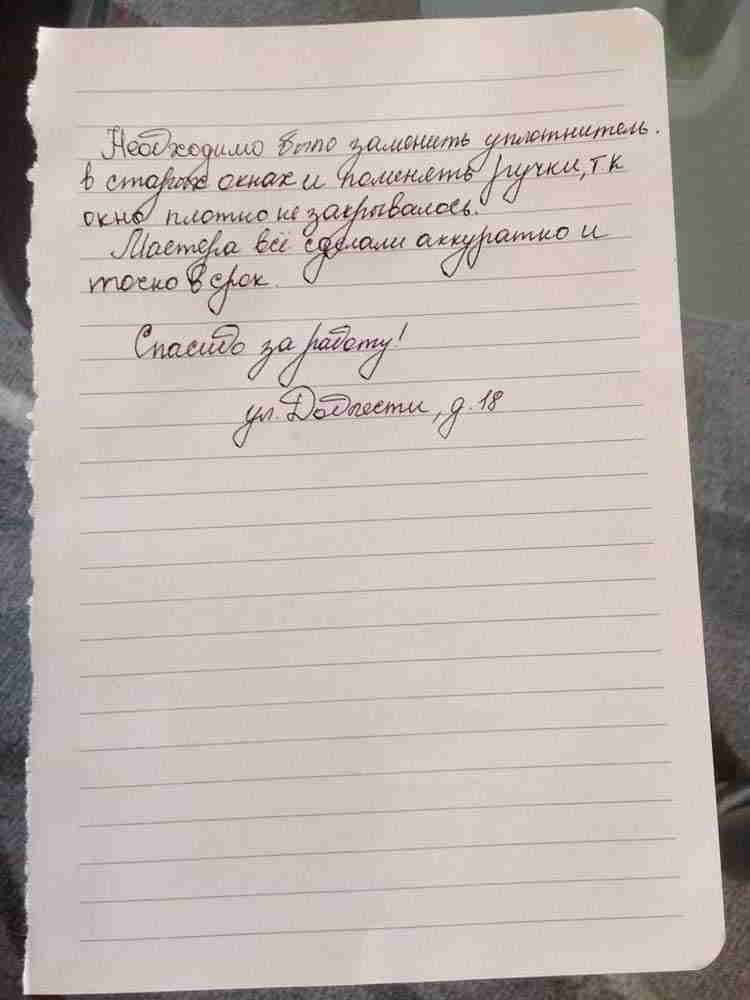 Необходимо было заменить уплотнитель.
в старых окнах и поменять ручки, т к
окно плотно не закрывалось.
Мастера всё сделали аккуратно и
точно в срок.
Спасибо за работу!
ул. Доблести, д. 18